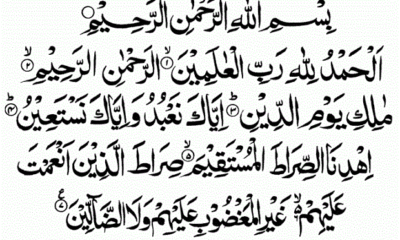 بِسْمِ اللهِ الرَّحْمٰنِ الرَّحِيْمِ
اَلْحَمْدُ لِلّٰهِ رَبِّ الْعٰلَمِيْنَ ۙ﴿۱﴾ الرَّحْمٰنِ الرَّحِيْمِ ۙ﴿۲﴾
مٰلِكِ يَوْمِ الدِّيْنِ ؕ﴿۳﴾ اِيَّاكَ نَعْبُدُ وَاِيَّاكَ نَسْتَعِيْنُ ؕ﴿۴﴾
اِهْدِنَا الصِّرَاطَ الْمُسْتَقِيْمَ ۙ﴿۵﴾ صِرَاطَ الَّذِيْنَ اَنْعَمْتَ
عَلَيْهِمْ ۙ۬ غَيْرِ الْمَغْضُوْبِ عَلَيْهِمْ وَلَا الضَّآلِّيْنَ ﴿۷﴾